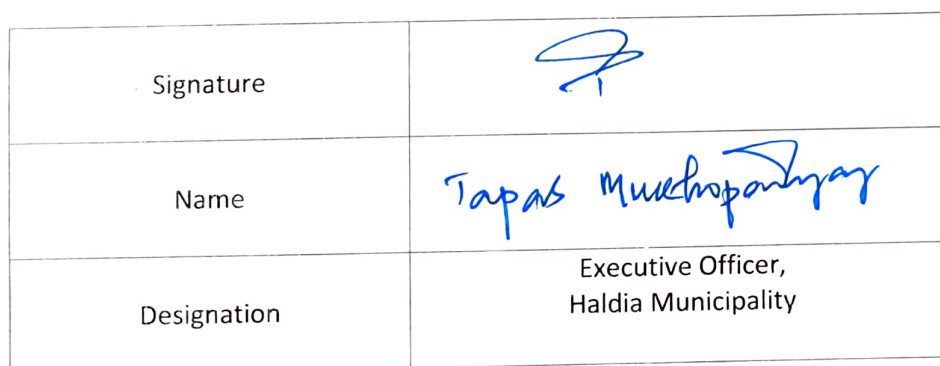 Signature
Name
Tapas Mukhopadhyay
Designation
Executive Officer,
Haldia Municipality